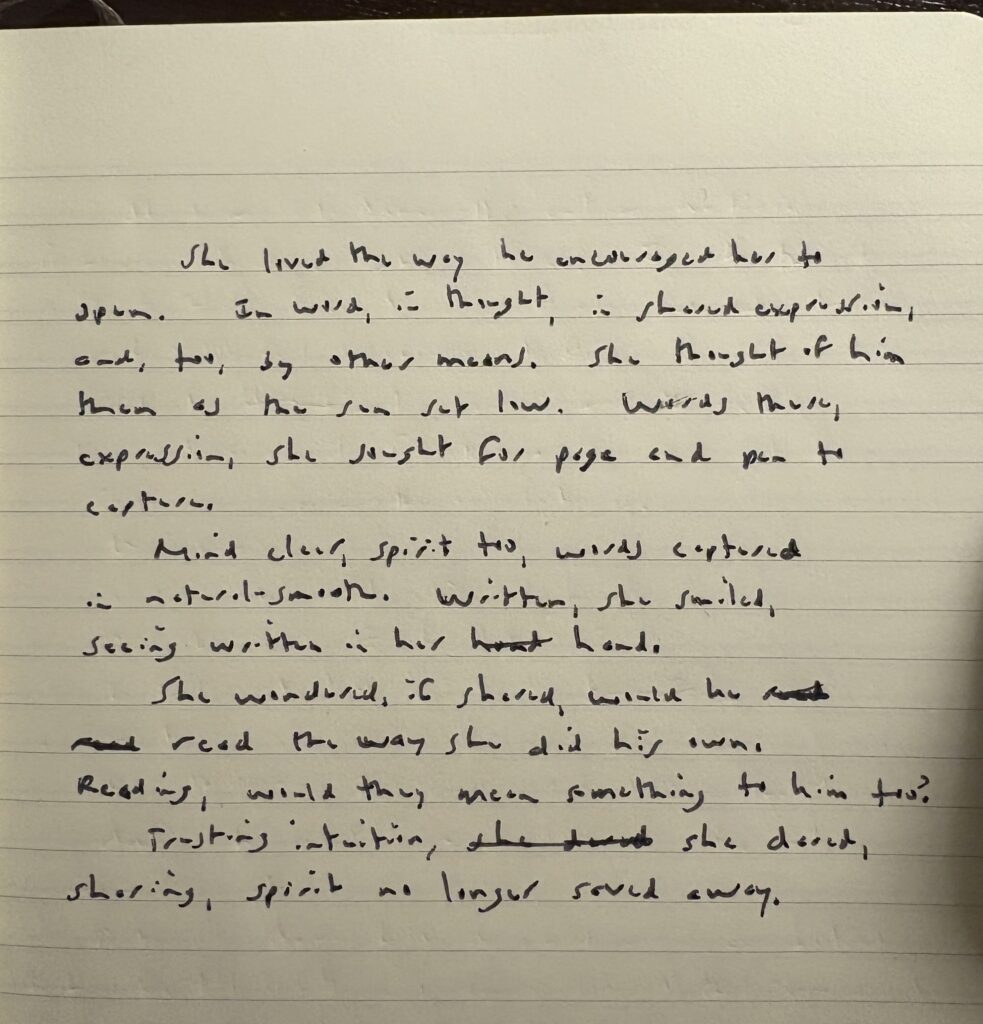 She lived the way he encouraged her to
open. In word, in thought, in shared expression,
and, too, by other means. She thought of him
then as the sun set low. Words there,
expression, she sought for page and pen to
capture.
Mind clear, spirit too, words captured
in natural-smooth. Written, she smiled,
seeing written in her hand.
She wondered, if shared, would he
read the way she did his own.
Reading, would they mean something to him too?
Trusting intuition, she dared,
sharing, spirit no longer saved away.